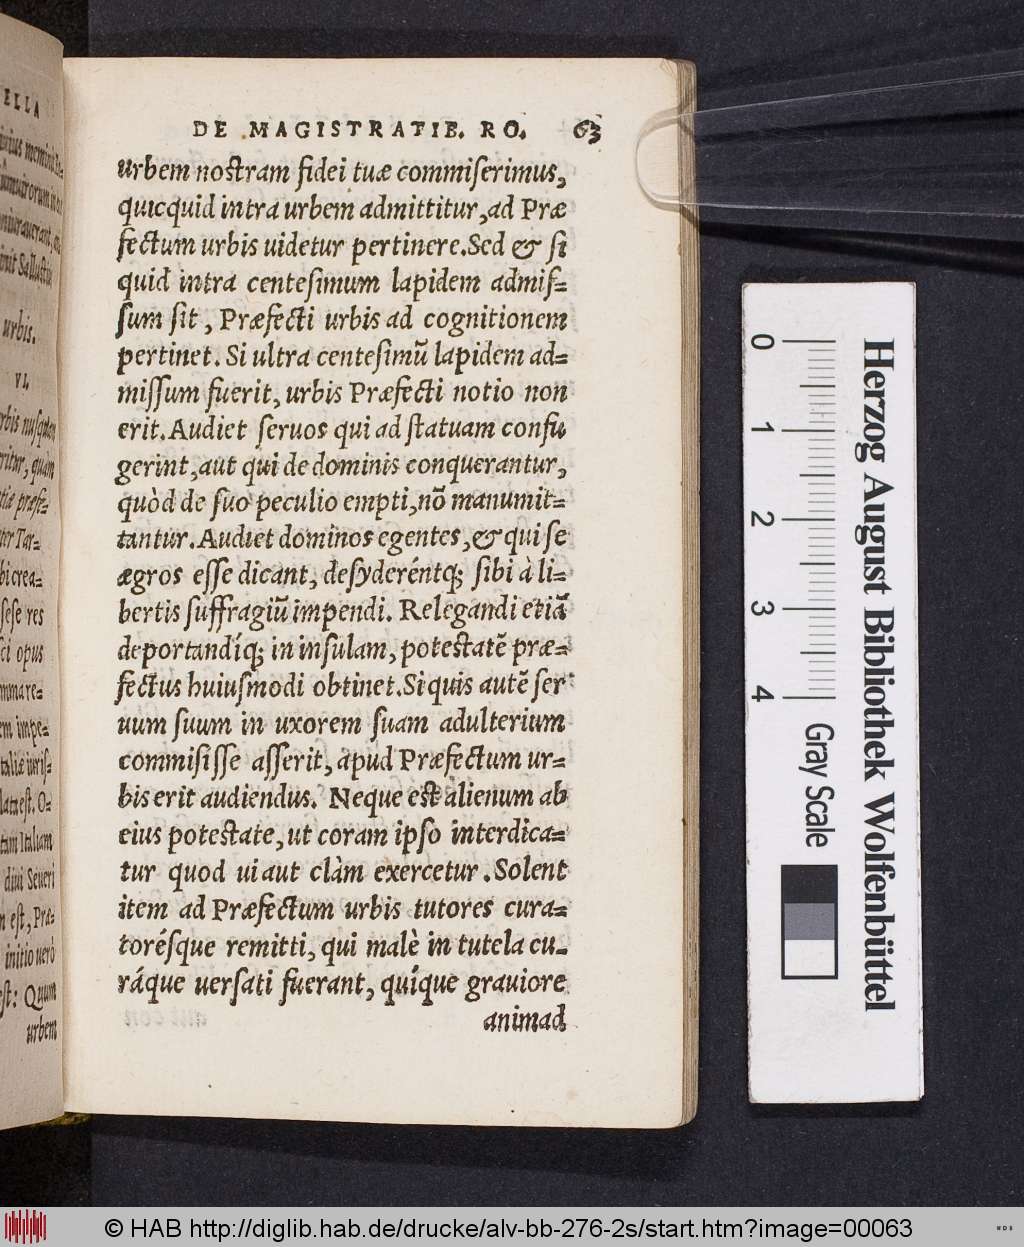 ELLA
urbis.
VI.
quam
bi crea=
sese res
opus
est. O=
tam Italiam
diui Seueri
n est, Præ=
initio uerò
est: Quum
urbem
DE MAGISTRATIB. RO. 63
urbem nostram fidei tuæ commiserimus,
quicquid intra urbem admittitur, ad Præ
fectum urbis uidetur pertinere. Sed & si
quid intra centesimum lapidem admis=
sum sit, Præfecti urbis ad cognitionem
pertinet. Si ultra centesimũ lapidem ad=
missum fuerit, urbis Præfecti notio non
erit. Audiet seruos qui ad statuam confu
gerint, aut qui de dominis conquerantur,
quòd de suo peculio empti, nõ manumit=
tantur. Audiet dominos egentes, & qui se
ægros esse dicant, desyderéntq; sibi à li=
bertis suffragiũ impendi. Relegandi etiã
deportandíq; in insulam, potestatẽ præ=
fectus huiusmodi obtinet. Si quis autẽ ser
uum suum in uxorem suam adulterium
commisisse asserit, apud Præfectum ur=
bis erit audiendus. Neque est alienum ab
eius potestate, ut coram ipso interdica=
tur quod ui aut clàm exercetur. Solent
item ad Præfectum urbis tutores cura=
torésque remitti, qui malè in tutela cu=
ráque uersati fuerant, quíque grauiore
animad
0 1 2 3 4
Gray Scale
Herzog August Bibliothek Wolfenbüttel
© HAB http://diglib.hab.de/drucke/alv-bb-276-2s/start.htm?image=00063
WDB